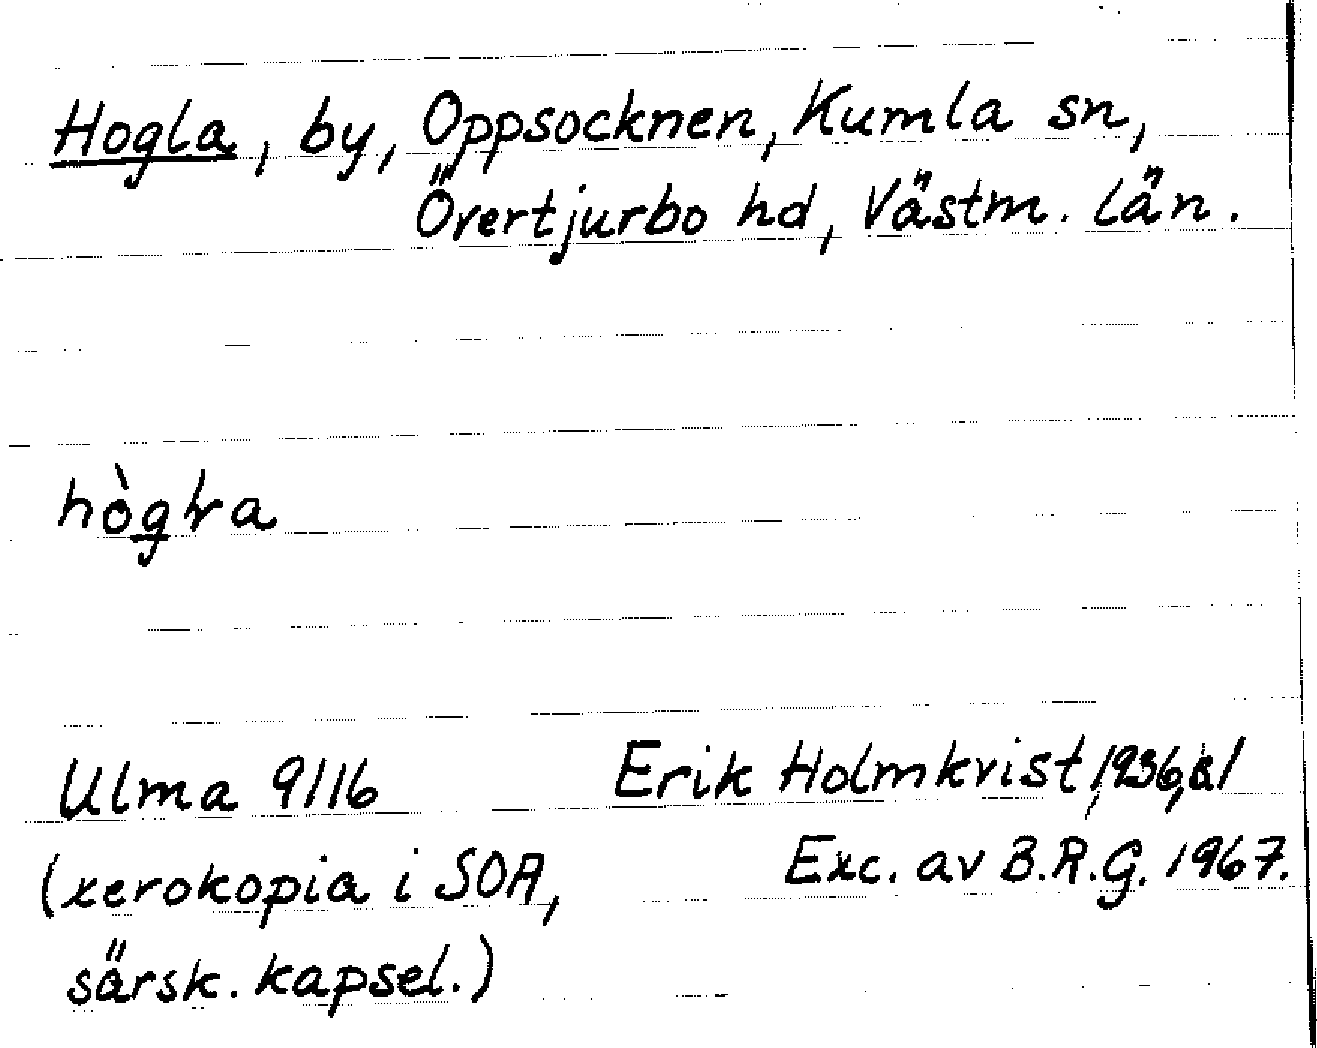 Hogla, by, Oppsocknen, Kumla sn,
Övertjurbo hd, Västm. län.
hòglra
Ulma 9116 Erik Holmkvist 1936,
(xerokopia i SOA, Exc. av B.R.G. 1967.
särsk. kapsel.)